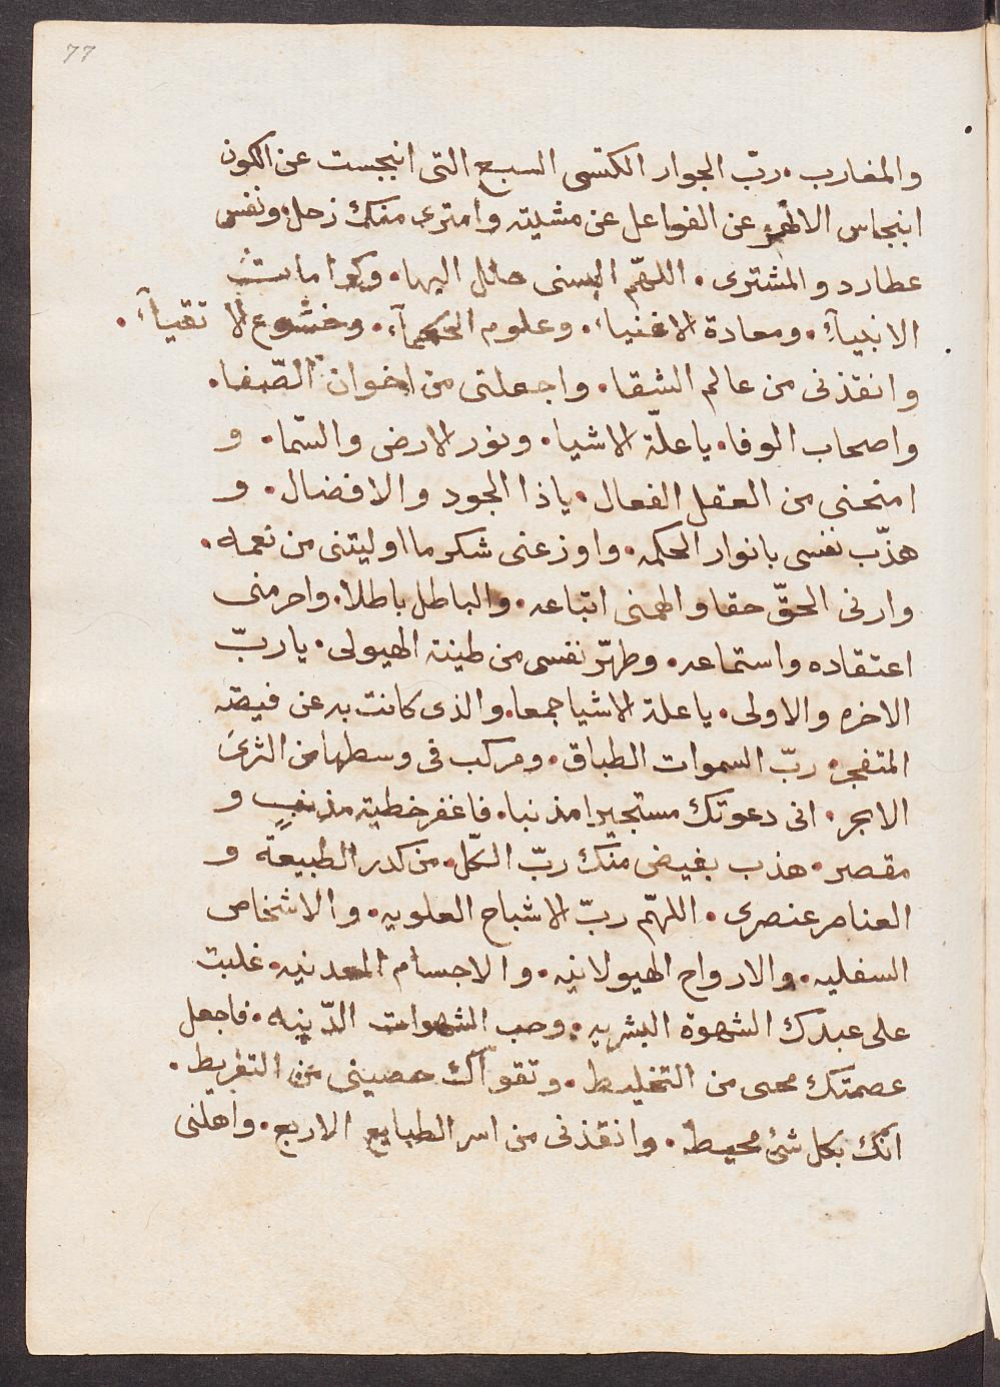 77
والمغارب. ربّ الجوار الكنسى السبع التى انبجست عن الكون
انبجاس الانهر عن الفواعل عن مشيته وامترى منك زحل ونفس
عطارد والمشترى. اللهمّ البسنى حلل البها. وكرامات
الانبيآء. ومعادة الاغنياء. وعلوم الحكمآء. وخشوع الاتقيآء.
وانقذنى من عالم الشقا. واجعلنى من اخوان الصّفا.
واصحاب الوفا. يا علّة الاشيا. ونور الارض والسّما. و
امنحنى من العقل الفعال. ياذا الجود والافضال. و
هذّب نفسى بانوار الحكمه. واوزعنى شكر ما اوليتنى من نعمه.
وارنى الحقّ حقا والهمنى اتباعه. والباطل باطلا. واحرمنى
اعتقاده واستماعه. وطهّر نفسى من طينة الهيولى. يا ربّ
الاخره والاولى. يا علة الاشيا جمعا. والذى كانت به عن فيضه
المتفجر. ربّ السموات الطباق. ومركب فى وسطها من الثرى
الابحر. انى دعوتك مستجيرا مذنبا. فاغفر خطية مذنبٍ و
مقصر. هذب بفيض منك ربّ الكّل. من كدر الطبيعة و
العناصر عنصرى. اللهمّ ربّ الاشباح العلويه. والاشخاص
السفليه. والارواح الهيولانيه. والاجسام المعدنيه. غلبت
على عبدك الشهوة البشريه. وحب الشهوات الدّنيه. فاجعل
عصمتك محى من التخليط. وتقوآك حصينى من التفريط.
انّك بكل شئ محيط. وانقذنى من اسر الطبايع الاربع. واهلنى